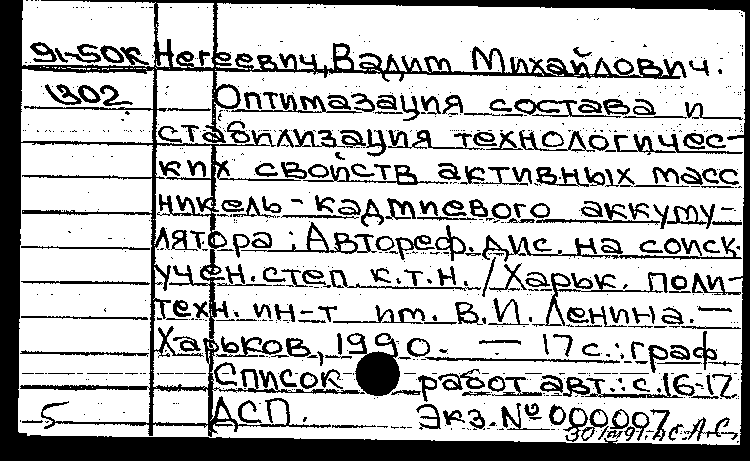 91-50К Негеевич, Вадим Михайлович.
1302 Оптимазация состава и
стабилизация технологичес-
ких свойств активных масс
никель-кадмиевого аккуму-
лятора: Автореф. дис. на соиск.
учен. степ. к.т.н. / Харьк. поли-
техн. ин-т им. В.И. Ленина. —
Харьков, 1990. — 17 с.: граф
Список работ авт.: с.16-17
5 ДСП. Экз. № 000007